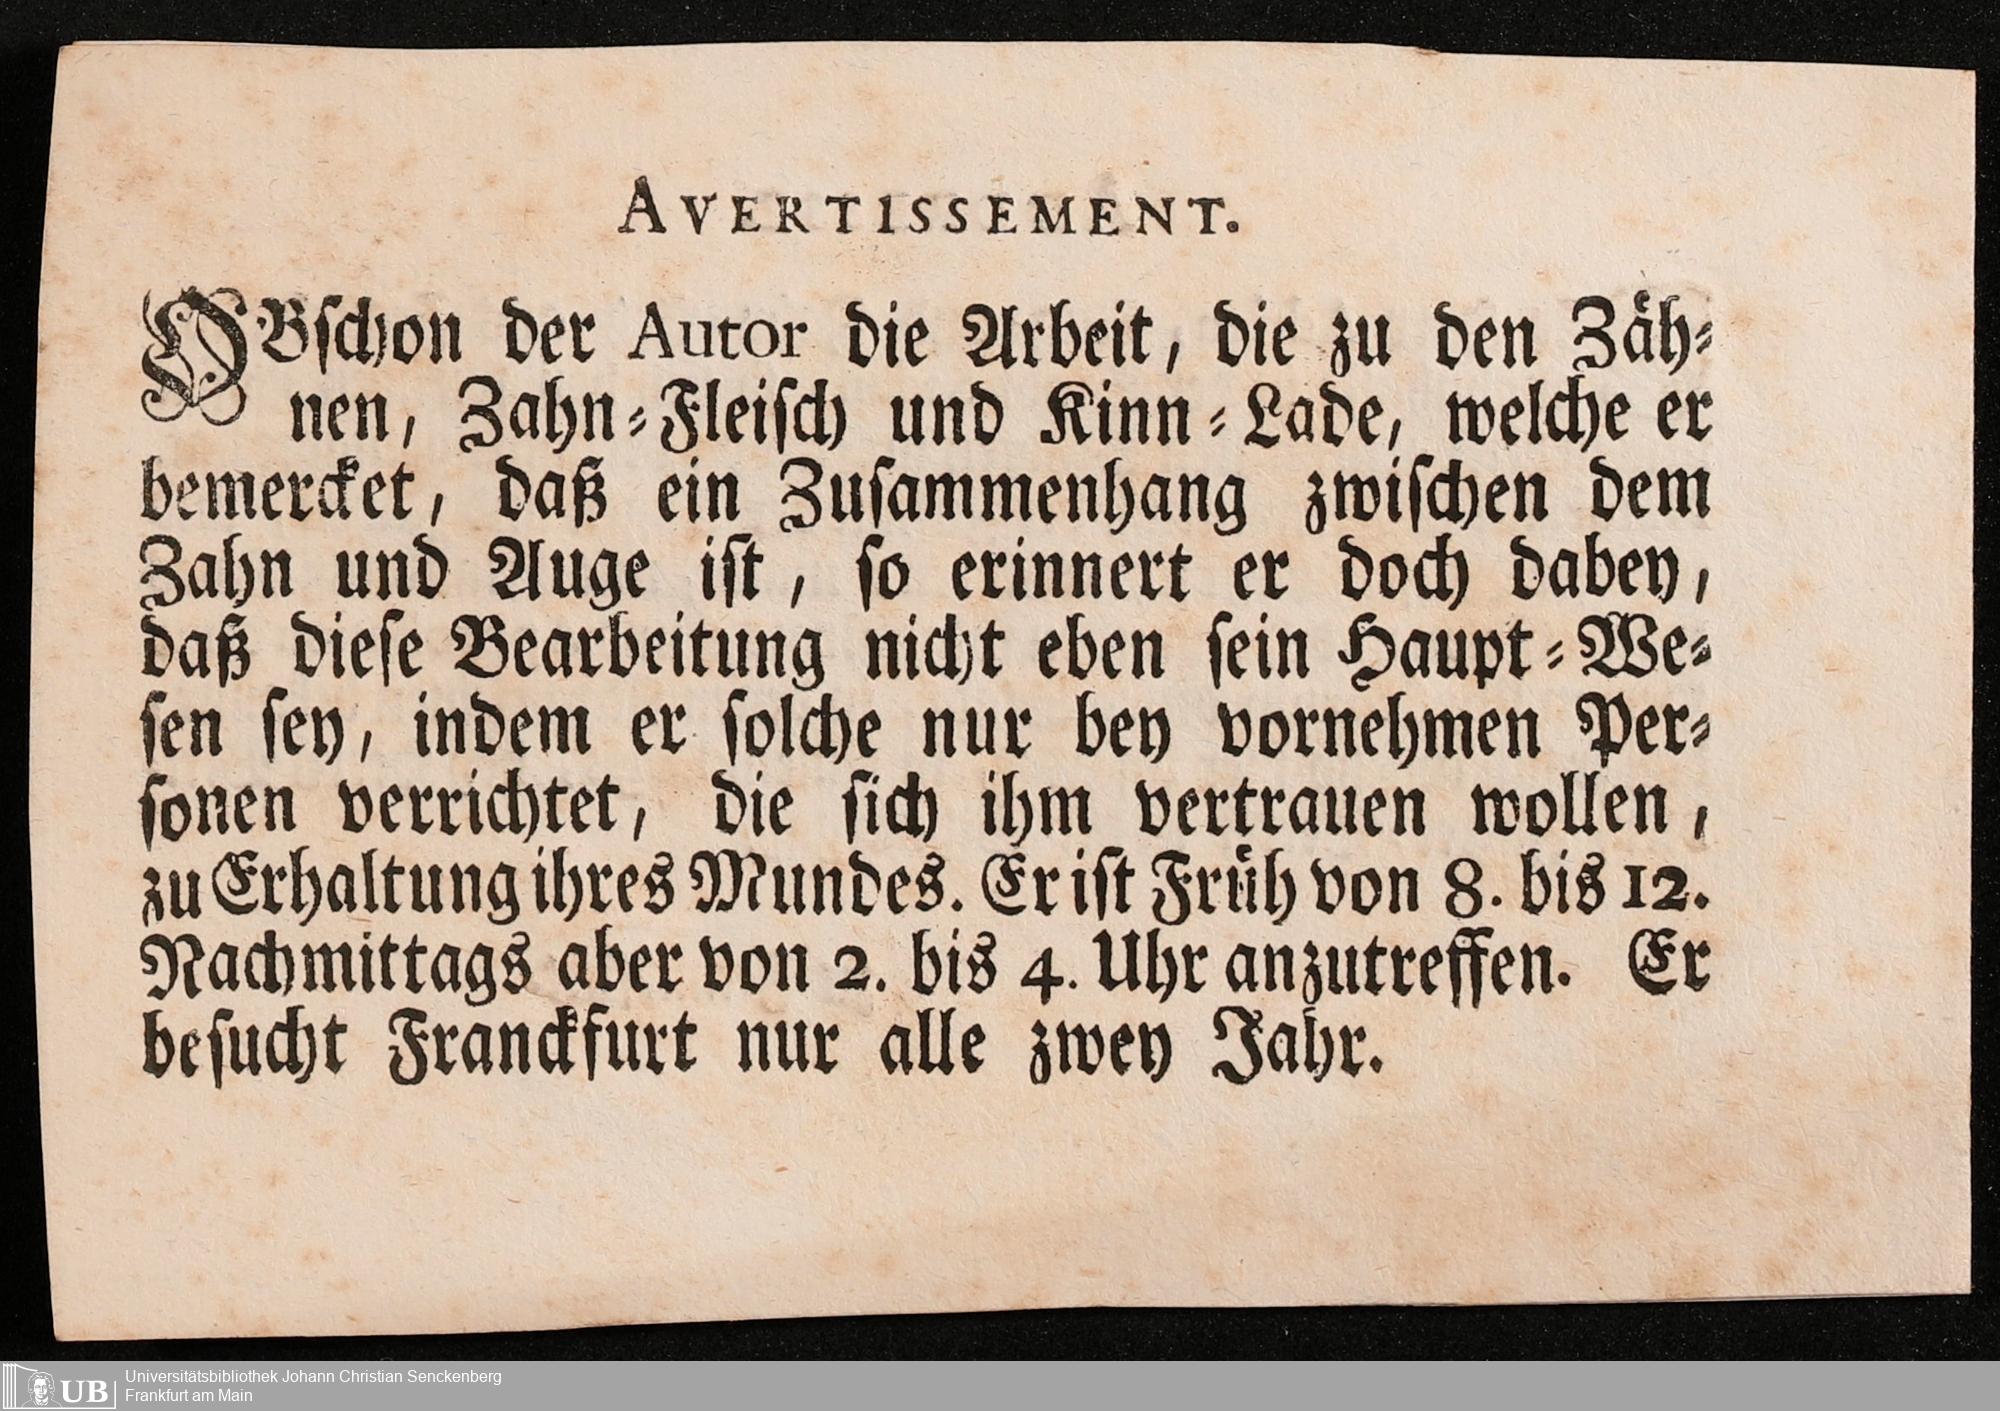 AVERTISSEMENT.
OBschon der Autor die Arbeit, die zu den Zäh-
nen, Zahn-Fleisch und Kinn-Lade, welche er
bemercket, daß ein Zusammenhang zwischen dem
Zahn und Auge ist, so erinnert er doch dabey,
daß diese Bearbeitung nicht eben sein Haupt-We-
sen sey, indem er solche nur bey vornehmen Per-
sonen verrichtet, die sich ihm vertrauen wollen,
zu Erhaltung ihres Mundes. Er ist Früh von 8. bis 12.
Nachmittags aber von 2. bis 4. Uhr anzutreffen. Er
besucht Franckfurt nur alle zwey Jahr.
UB
Universitätsbibliothek Johann Christian Senckenberg
Frankfurt am Main